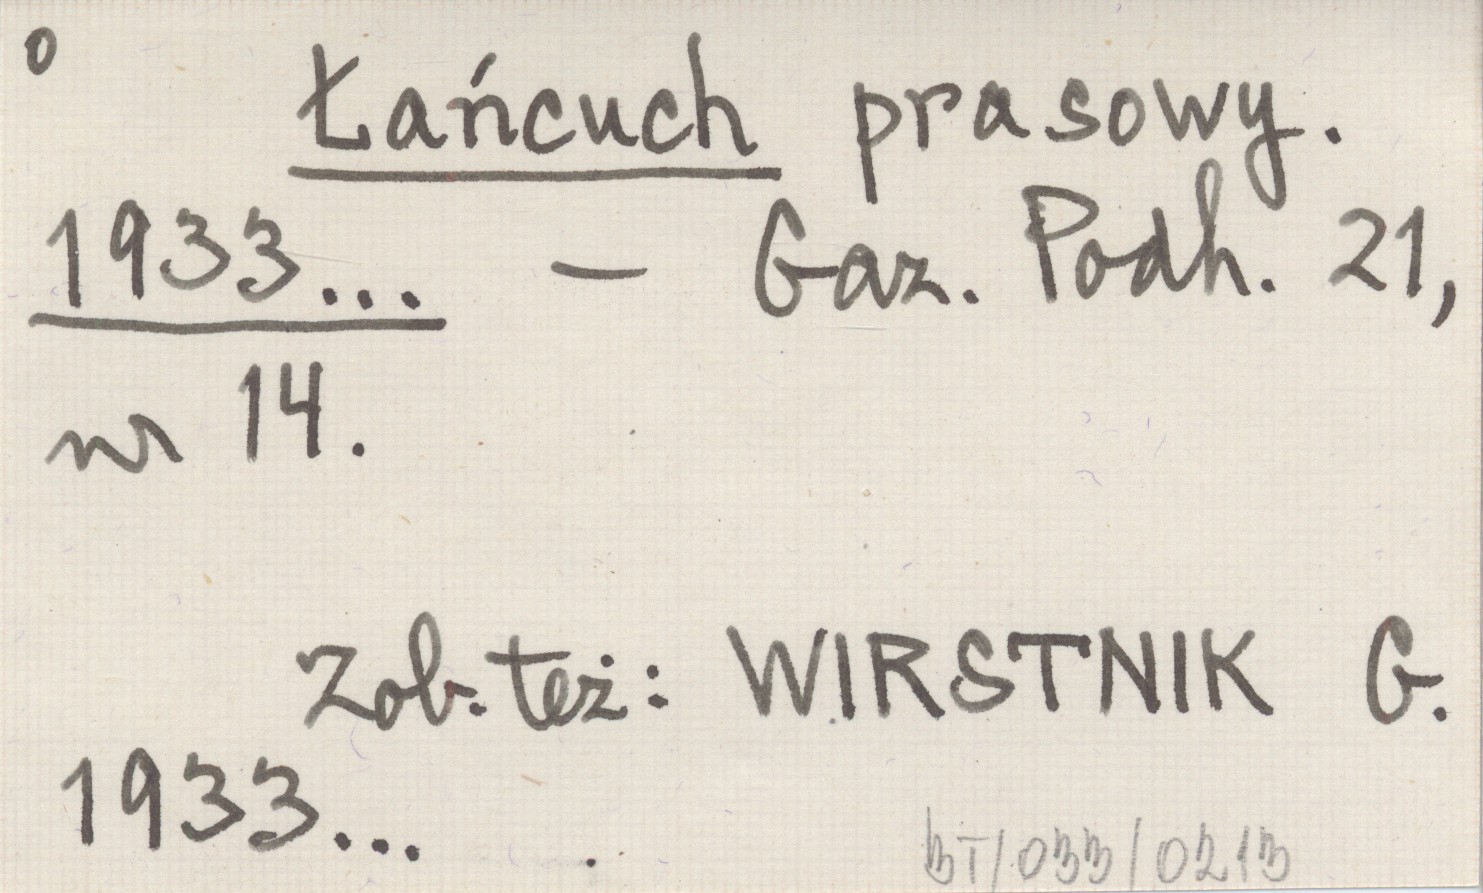 0
Łańcuch prasowy.
1933... – Gaz. Podh. 21,
nr 14.
Zob. też: WIRSTNIK G.
1933...
BT/033/0213